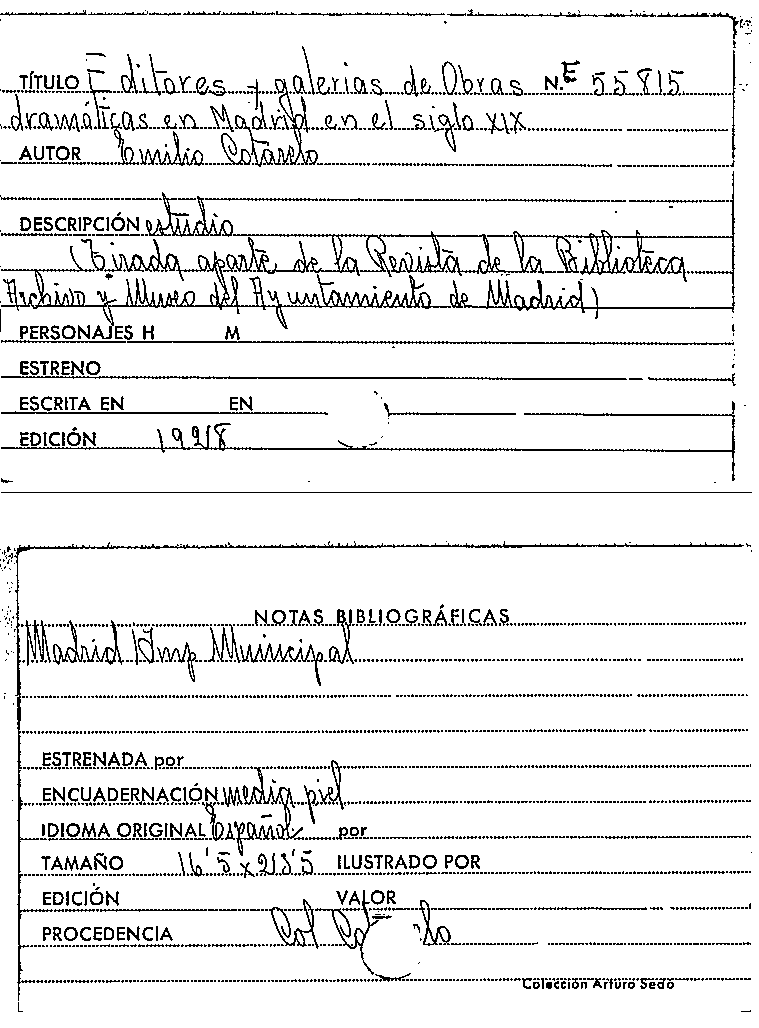 TÍTULO Editores y galerias de Obras N.E 55815
dramáticas en Madrid en el siglo XIX
AUTOR Emilio Cotarelo
DESCRIPCIÓN estudio
(Tirada aparte de la Revista de la Biblioteca
Archivo y Museo del Ayuntamiento de Madrid)
PERSONAJES H M
ESTRENO
ESCRITA EN EN
EDICIÓN 1928
NOTAS BIBLIOGRÁFICAS
Madrid Imp Municipal
ESTRENADA por
ENCUADERNACIÓN media piel
IDIOMA ORIGINAL Español por
TAMAÑO 16'5 x ILUSTRADO POR
EDICIÓN VALOR
PROCEDENCIA Col
Colección Arturo Sedó